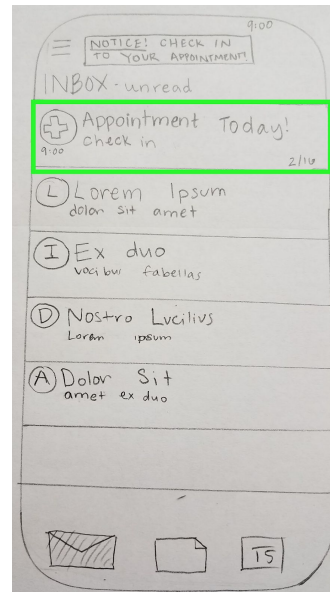 9:00
NOTICE! CHECK IN
TO YOUR APPOINTMENT!
INBOX - unread
Appointment Today!
check in
9:00
2/16
L Lorem Ipsum
dolor sit amet
I Ex duo
voci bus fabellas
D Nostro Lucilius
Lorem ipsum
A Dolor Sit
amet ex duo
15